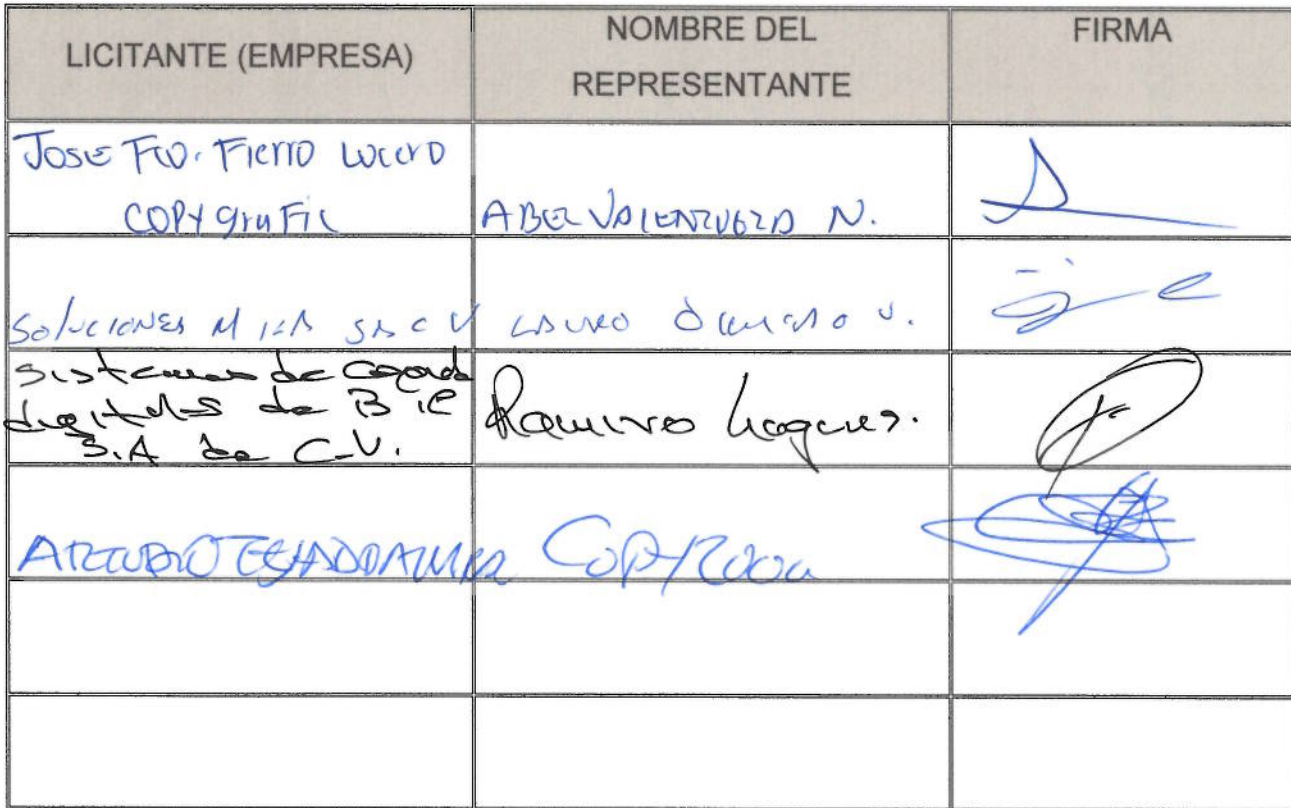 LICITANTE (EMPRESA)
NOMBRE DEL
REPRESENTANTE
FIRMA
JOSE FCO. FIERRO LUCERO
COPY graFic
ABEL VALENZUELA N.
SOLUCIONES SA C V
LAURO V.
Sistemas de Copiado
digitales de B C
S.A de C.V.
Ramiro
ARTURO COPYZONE